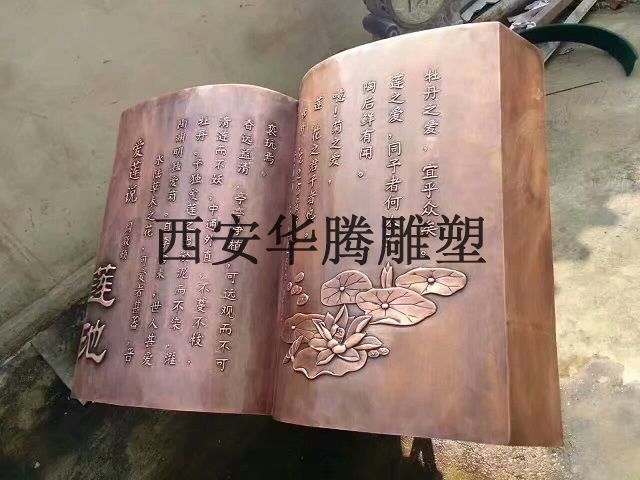 莲池
爱莲说 周敦颐
水陆草木之花,可爱者甚蕃。晋
陶渊明独爱菊。自李唐来,世人甚爱
牡丹。予独爱莲之出淤泥而不染,濯
清涟而不妖,中通外直,不蔓不枝,
香远益清,亭亭净植,可远观而不可
亵玩焉。
莲,花之君子者也。
噫!菊之爱,
陶后鲜有闻。
莲之爱,同予者何
牡丹之爱,宜乎众矣。
西安华腾雕塑